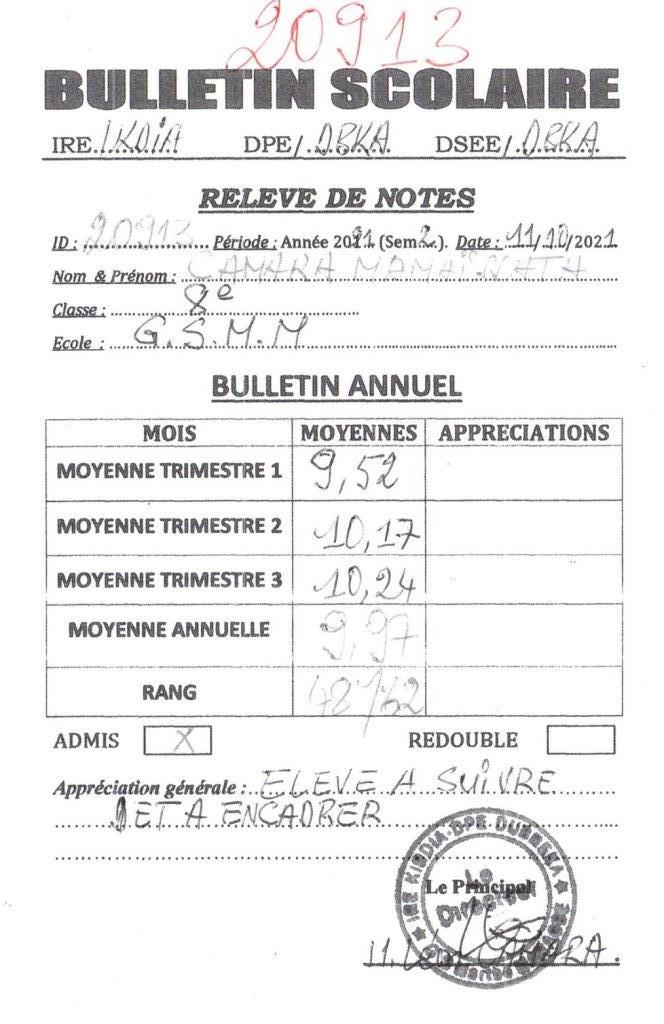 20913
BULLETIN SCOLAIRE
IRE/KDIA DPE/.DBKA DSEE/.DBKA
RELEVE DE NOTES
ID : 20913 Période : Année 2021 (Sem 2.). Date : 11/10/2021
Nom & Prénom : CAMARA
Classe : 8e
Ecole : G.S.M.M
BULLETIN ANNUEL
MOIS MOYENNES APPRECIATIONS
MOYENNE TRIMESTRE 1 9,52
MOYENNE TRIMESTRE 2 10,17
MOYENNE TRIMESTRE 3 10,24
MOYENNE ANNUELLE 9,97
RANG 48/62
ADMIS X REDOUBLE
Appréciation générale : ELEVE A SUIVRE
ET A ENCADRER
IRE KINDIA-DPE-DUBREKA
Le Principal
Le Directeur
CAMARA.